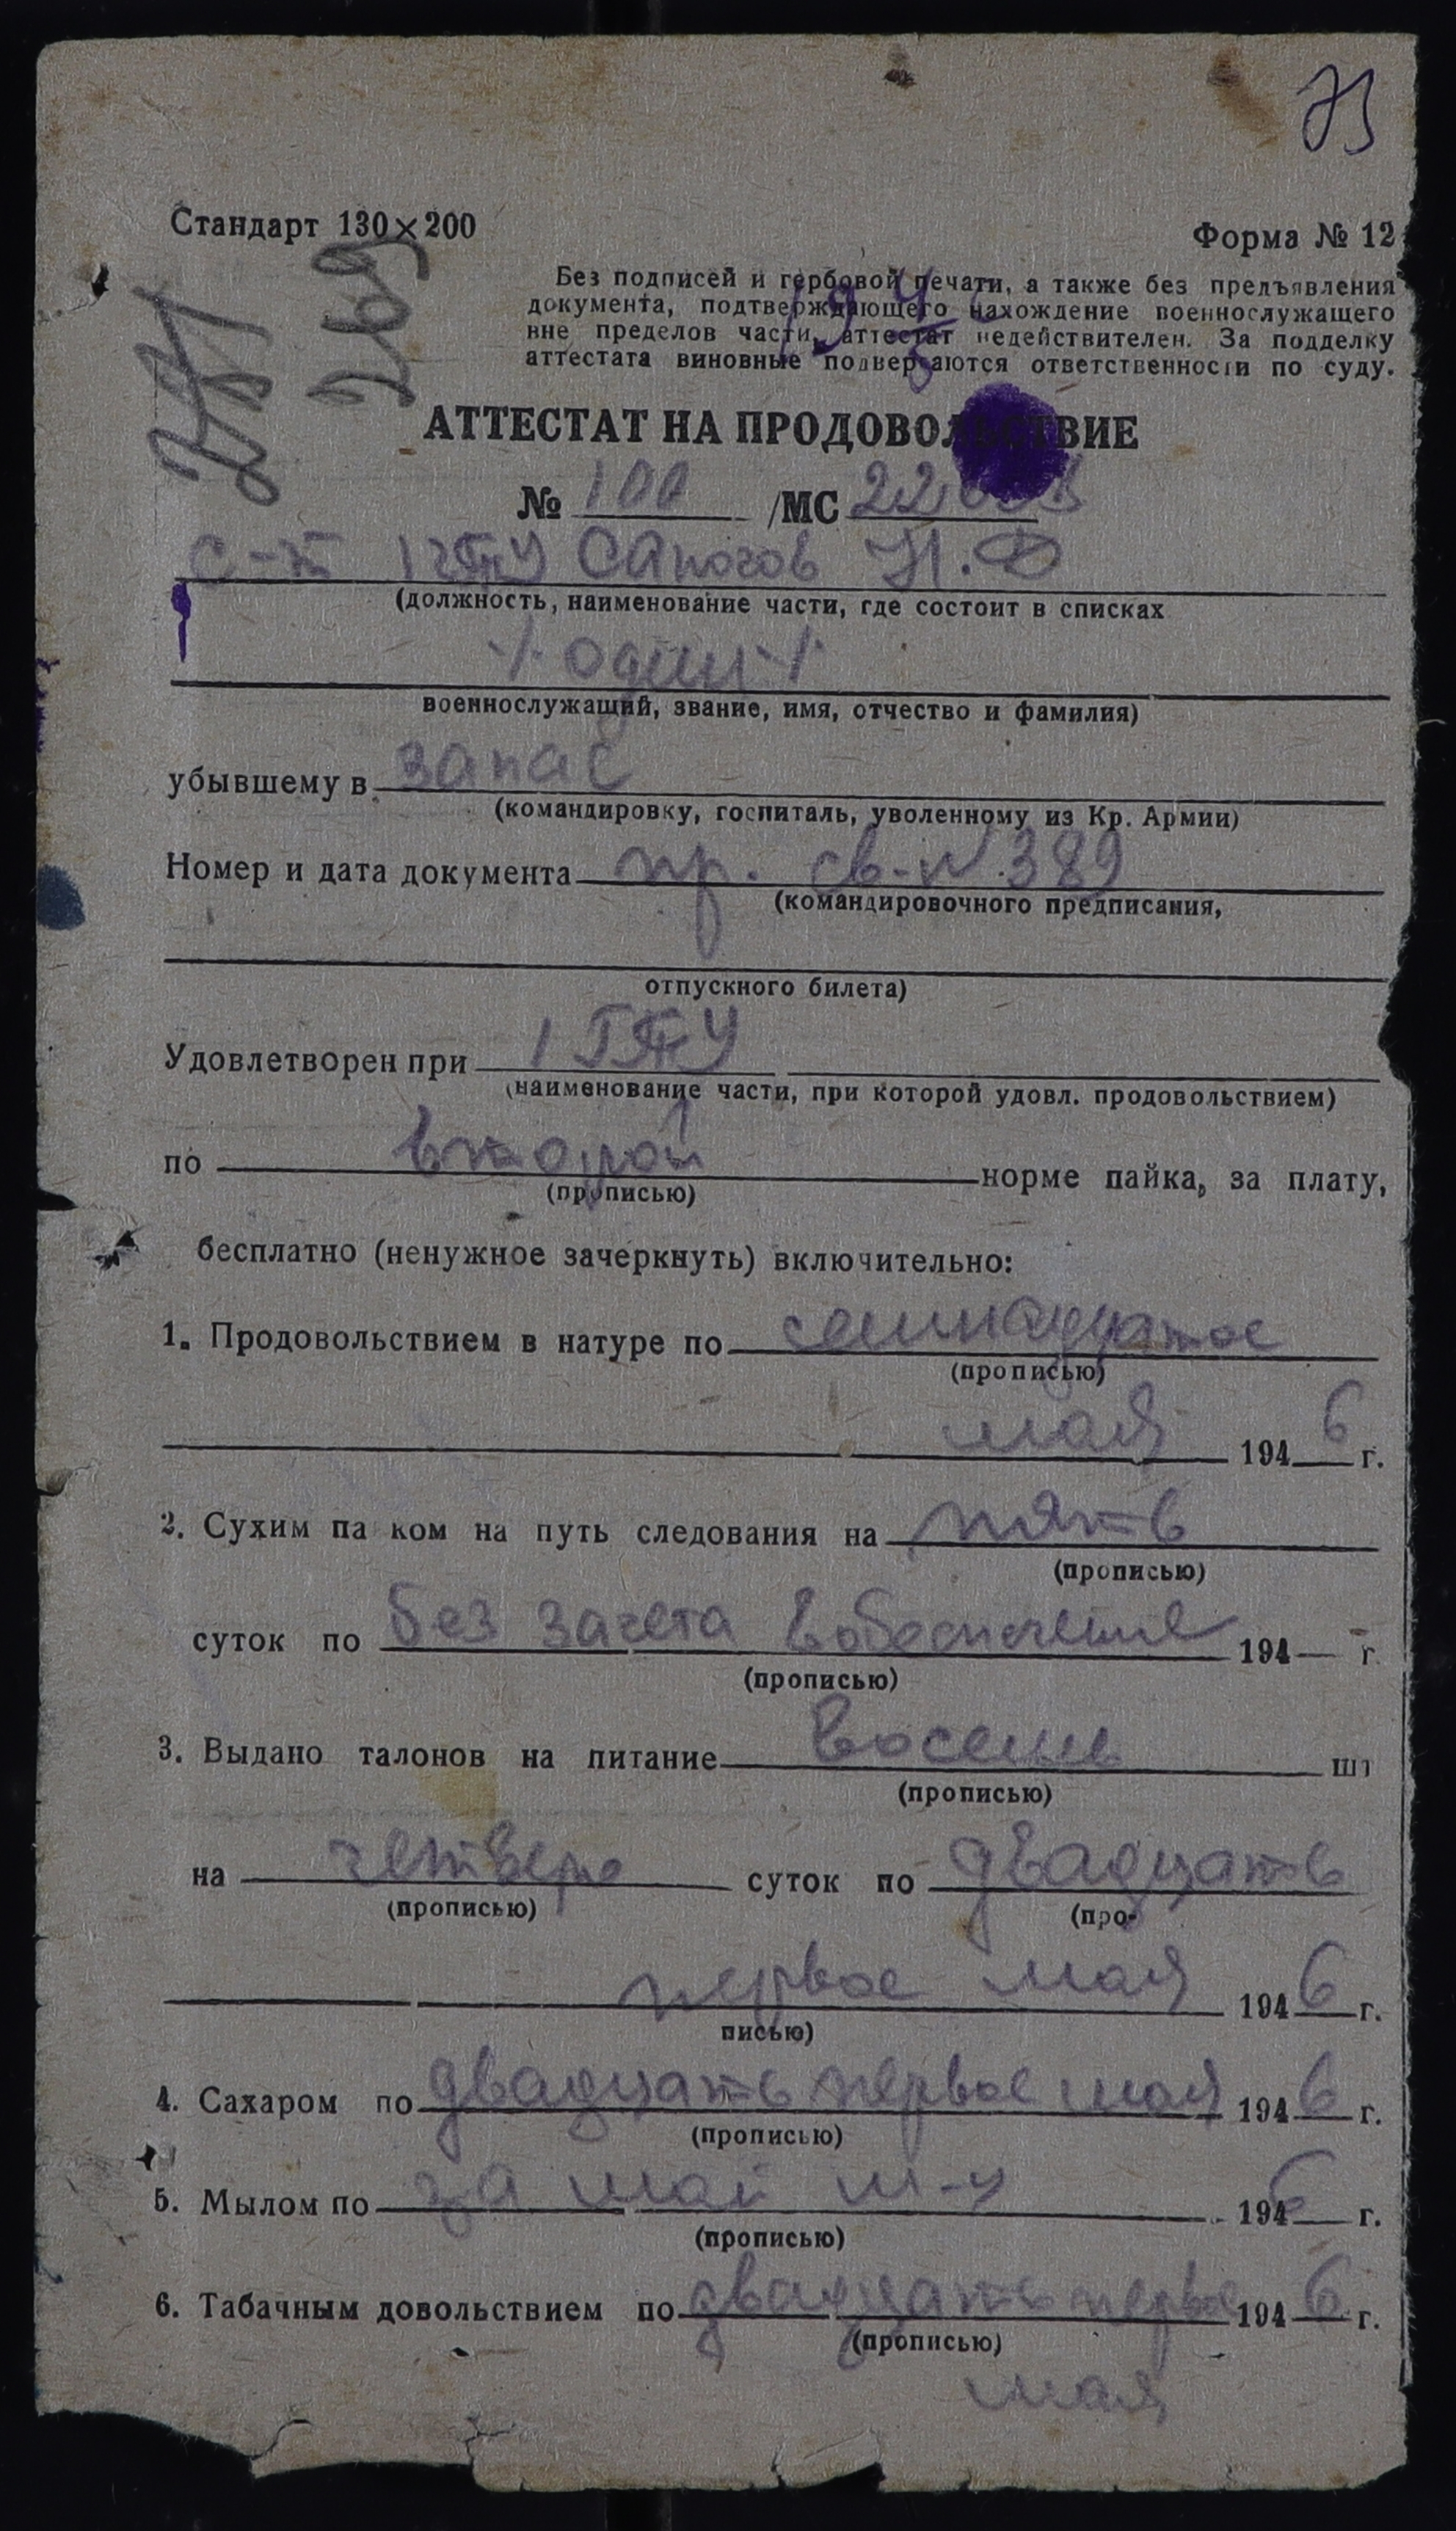 73
Стандарт 130×200
Форма № 12
269
Без подписей и гербовой печати, а также без предъявления
документа, подтверждающего нахождение военнослужащего
вне пределов части, аттестат недействителен. За подделку
аттестата виновные подвергаются ответственности по суду.
АТТЕСТАТ НА ПРОДОВОЛЬСТВИЕ
№ 100 /МС
с-т 1 гТТУ Сапогов Н.Ф
(должность, наименование части, где состоит в списках
-/- один -/-
военнослужащий, звание, имя, отчество и фамилия)
убывшему в запас
(командировку, госпиталь, уволенному из Кр. Армии)
Номер и дата документа пр. св-№ 389
(командировочного предписания,
отпускного билета)
Удовлетворен при 1 ГТТУ
(наименование части, при которой удовл. продовольствием)
по второй норме пайка, за плату,
(прописью)
бесплатно (ненужное зачеркнуть) включительно:
1. Продовольствием в натуре по семнадцатое
(прописью)
мая 1946 г.
2. Сухим па ком на путь следования на пять
(прописью)
суток по без зачета в обеспечение 194— г.
(прописью)
3. Выдано талонов на питание восемь шт
(прописью)
на четверо суток по двадцать
(прописью) (про-
первое мая 1946 г.
писью)
4. Сахаром по двадцать первое мая 1946 г.
(прописью)
5. Мылом по за май м-ц 1946 г.
(прописью)
6. Табачным довольствием по двадцать первое 1946 г.
(прописью)
мая